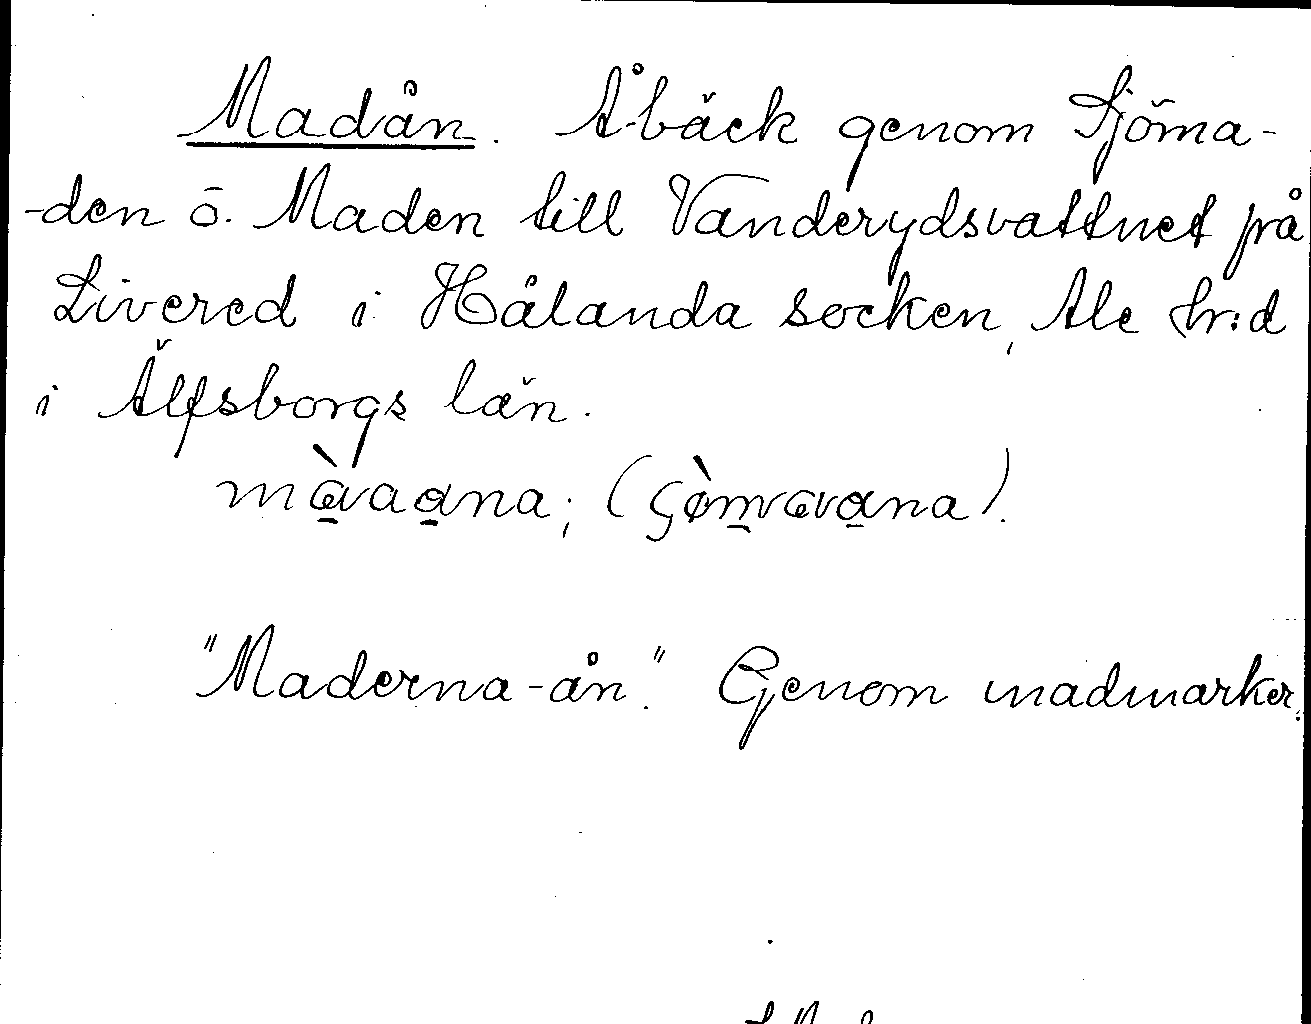 Madån. Åbäck genom Sjöma-
-den ö. Maden till Vanderydsvattnet på
Livered i Hålanda socken, Ale hr:d
i Älfsborgs län.
"Maderna-ån". Genom madmarker.